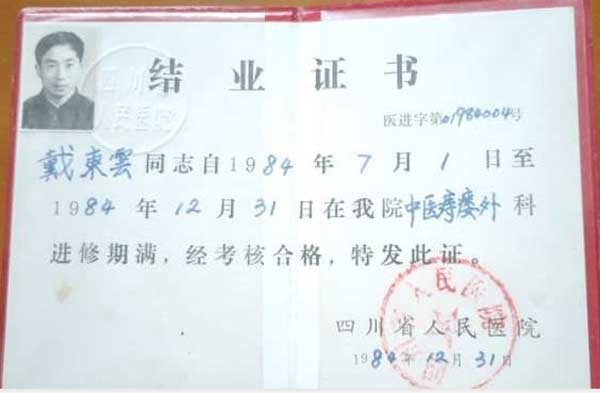 结业证书
四川
人民医院
医进字第01984004号
戴東雲同志自1984年7月1日至
1984年12月31日在我院中医痔瘘外科
进修期满,经考核合格,特发此证。
人民医院
四川省人民医院
1984年12月31日